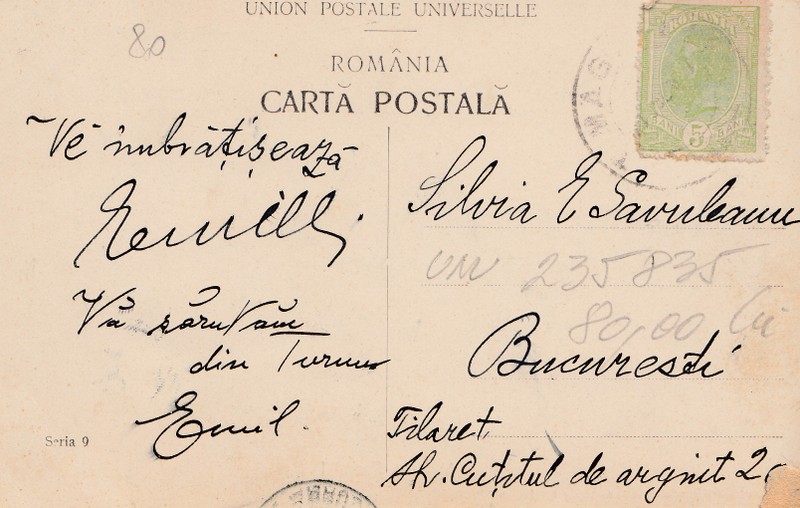 UNION POSTALE UNIVERSELLE
80
ROMÂNIA
CARTĂ POSTALĂ
ROMANIA
BANI 5 BANI
MAG
Vĕ îmbrățișează
Emill
Vă sărutăm
din Turnu
Emil.
Silvia E Savuleanu
235835
80,00 lei
Bucuresti
Filaret
Str. Cuțitul de argint 2
Seria 9